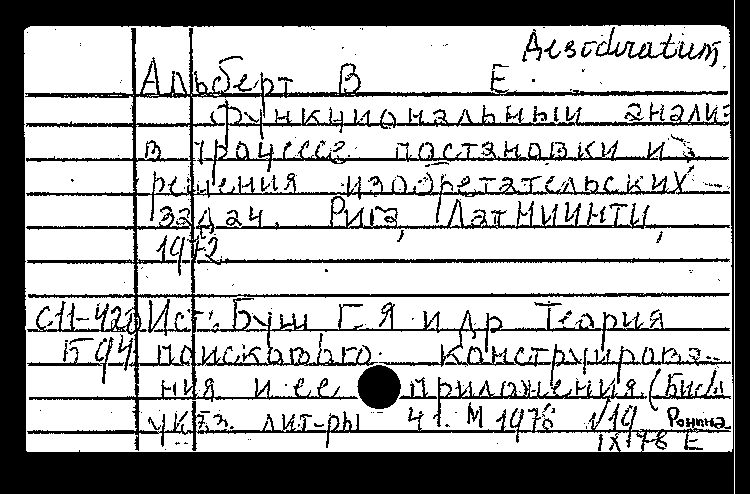 Desideratum
Альберт В Е.
Функциональный анализ
в процессе постановки и
решения изобретательских
задач. Рига, ЛатНИИНТИ,
1972.
Ист.: Буш Г. Я и др Теория
Б 94 поискового конструирова-
ния и ее приложения. (Библ
указ. лит-ры Ч 1. М 1976 1/19
IX 78 Е